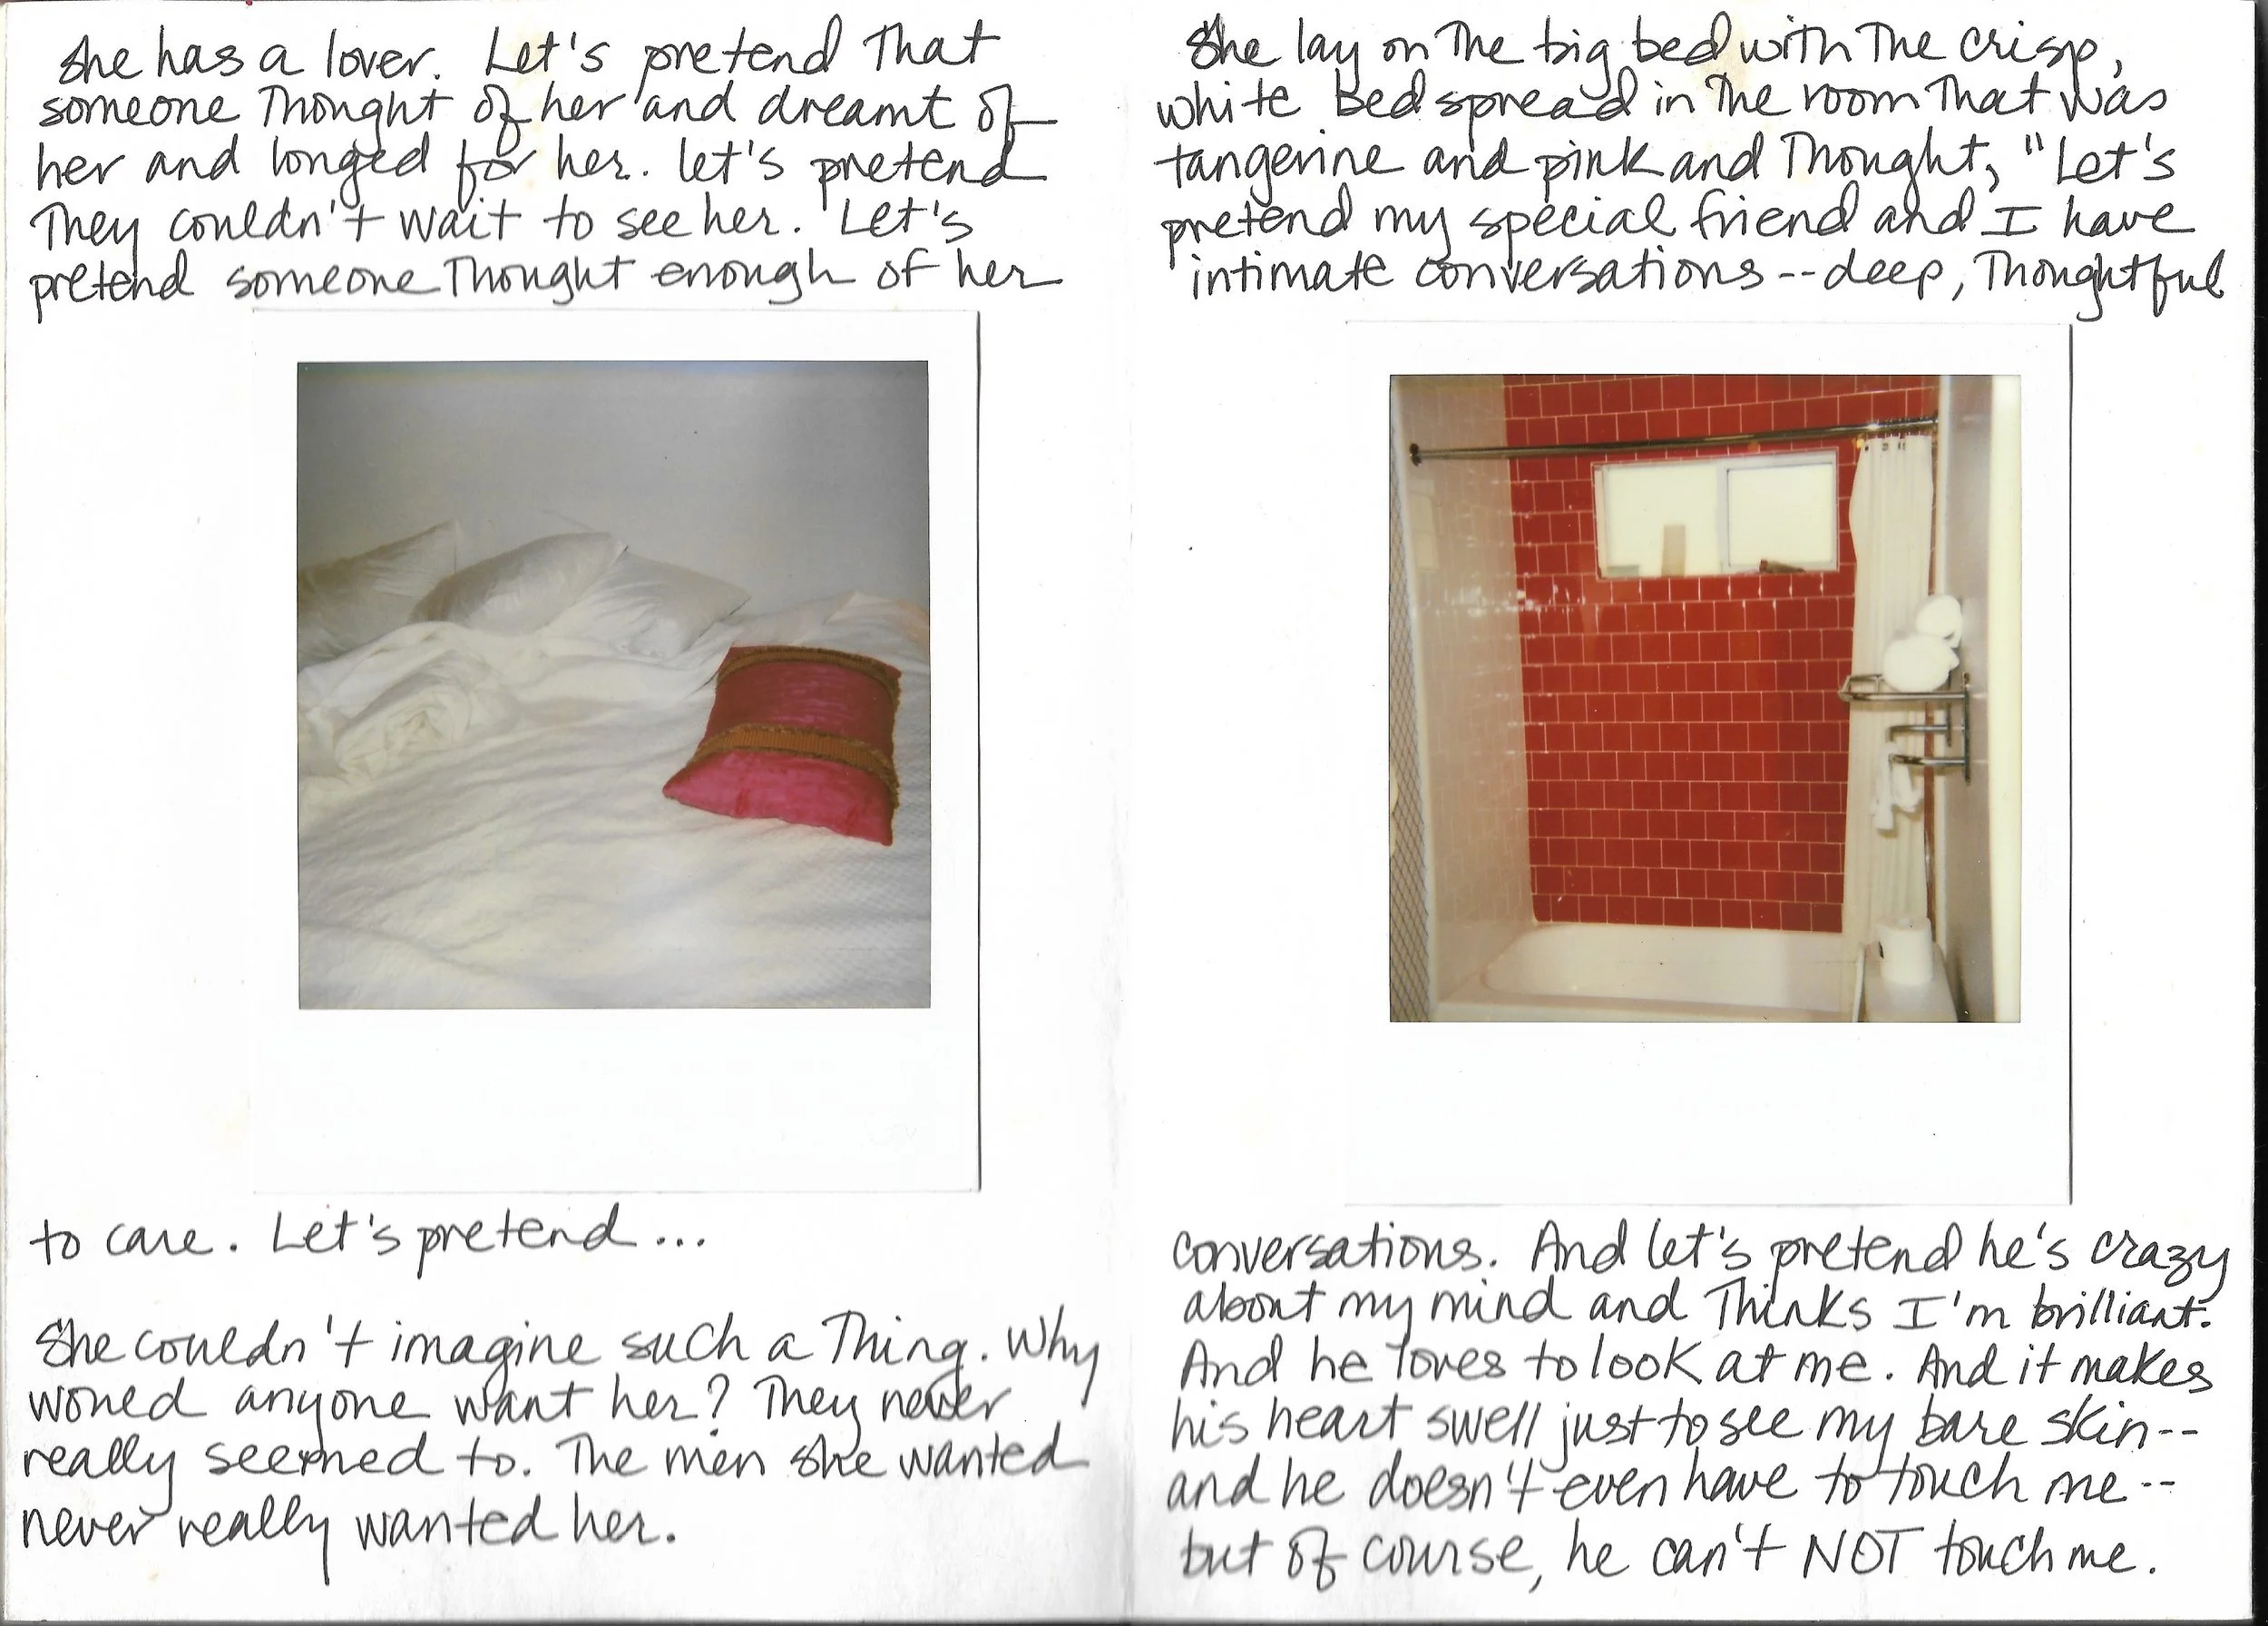 She has a lover. Let's pretend that
someone thought of her and dreamt of
her and longed for her. let's pretend
They couldn't wait to see her. Let's
pretend someone thought enough of her
to care. Let's pretend...
She couldn't imagine such a thing. Why
would anyone want her? They never
really seemed to. The men she wanted
never really wanted her.
She lay on the big bed with the crisp,
white bedspread in the room that was
tangerine and pink and thought, "Let's
pretend my special friend and I have
intimate conversations--deep, thoughtful
conversations. And let's pretend he's crazy
about my mind and thinks I'm brilliant.
And he loves to look at me. And it makes
his heart swell just to see my bare skin--
and he doesn't even have to touch me--
but of course, he can't NOT touch me.